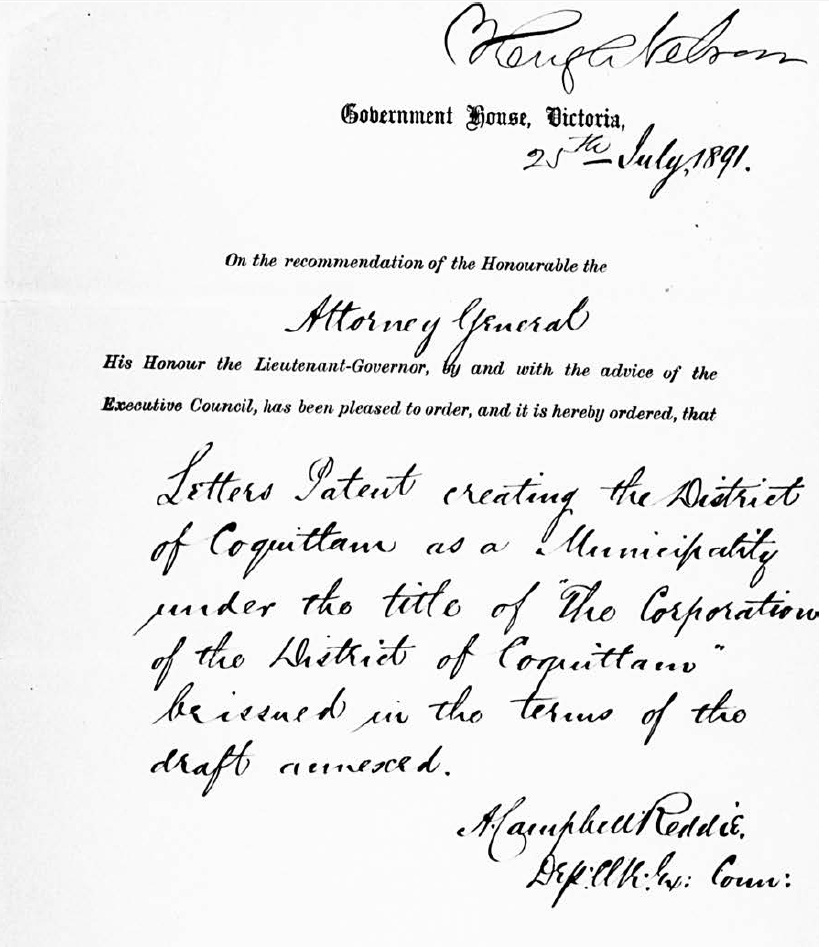 Hugh Nelson
Government House, Victoria,
25th July, 1891.
On the recommendation of the Honourable the
Attorney General
His Honour the Lieutenant-Governor, by and with the advice of the
Executive Council, has been pleased to order, and it is hereby ordered, that
Letters Patent creating the District
of Coquittam as a Municipality
under the title of "The Corporation
of the District of Coquittam"
be issued in the terms of the
draft annexed.
A. Campbell Reddie.
Dep: Clk: Ex: Coun: